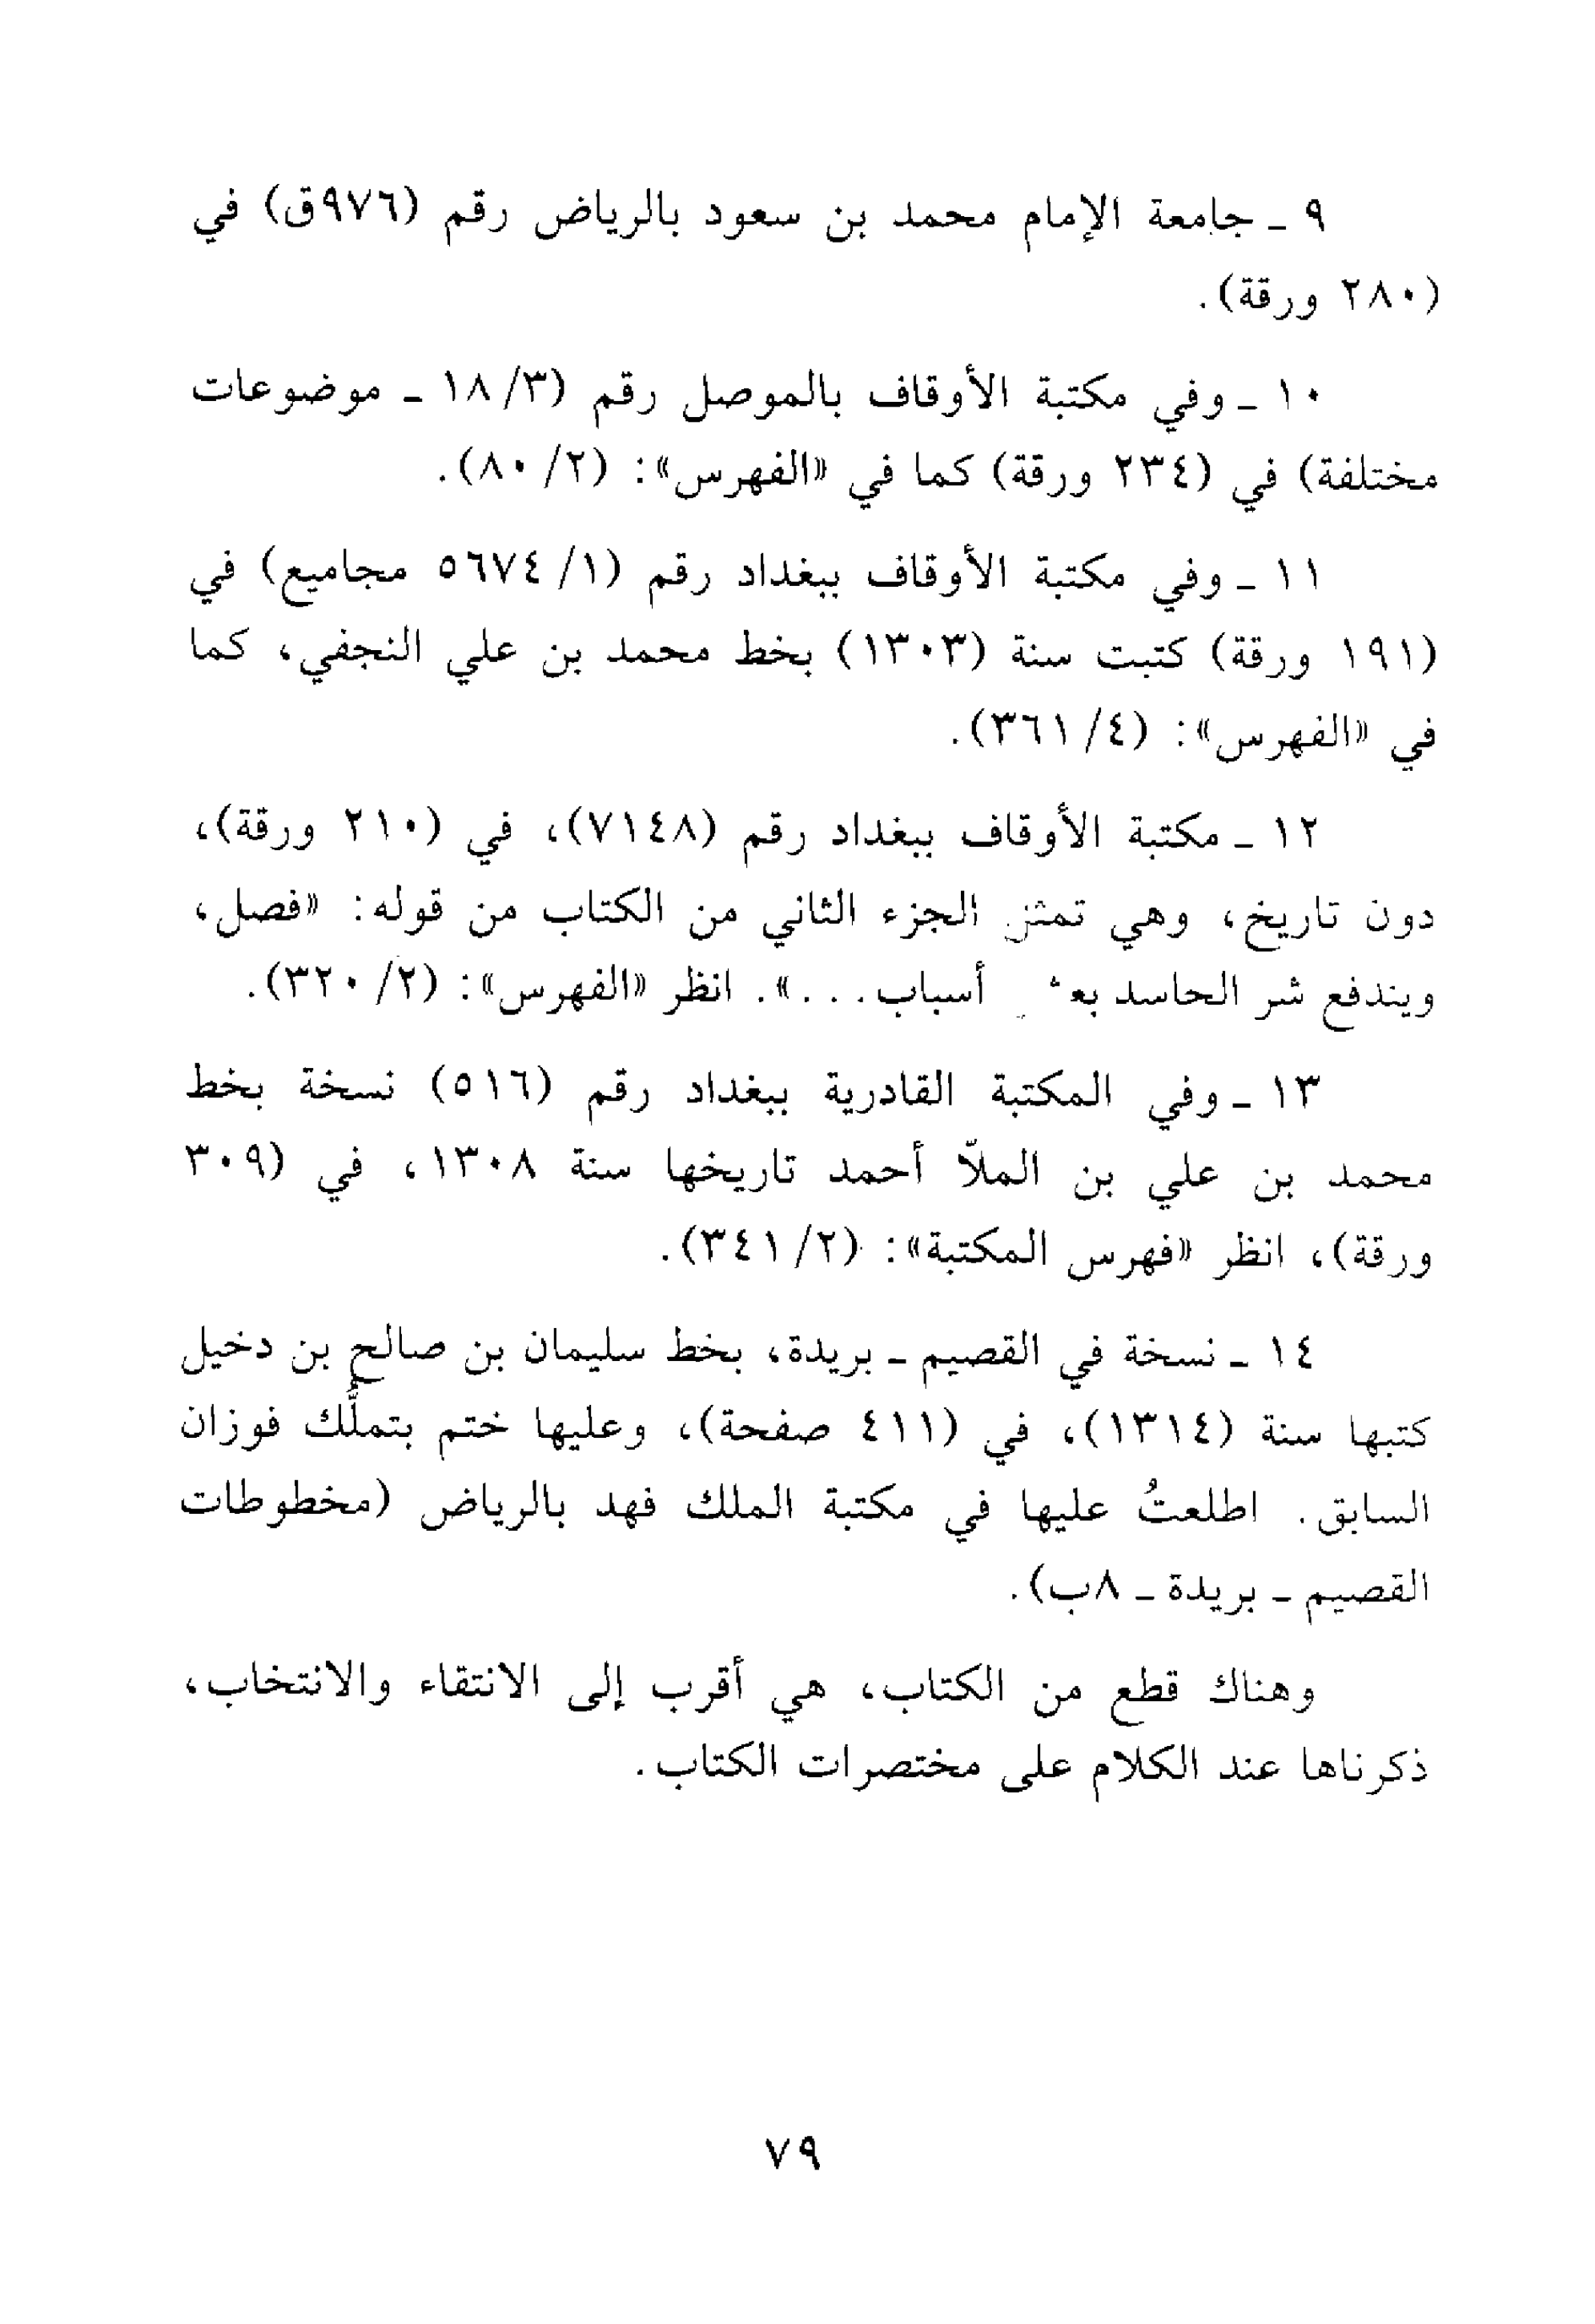 ٩ ـ جامعة الإمام محمد بن سعود بالرياض رقم (٩٧٦ق) في
(٢٨٠ ورقة).
١٠ ـ وفي مكتبة الأوقاف بالموصل رقم (١٨/٣ ـ موضوعات
مختلفة) في (٢٣٤ ورقة) كما في «الفهرس»: (٨٠/٢).
١١ ـ وفي مكتبة الأوقاف ببغداد رقم (٥٦٧٤/١ مجاميع) في
(١٩١ ورقة) كتبت سنة (١٣٠٣) بخط محمد بن علي النجفي، كما
في «الفهرس»: (٣٦١/٤).
١٢ ـ مكتبة الأوقاف ببغداد رقم (٧١٤٨)، في (٢١٠ ورقة)،
دون تاريخ، وهي تمثل الجزء الثاني من الكتاب من قوله: «فصل،
ويندفع شر الحاسد أسباب...». انظر «الفهرس»: (٣٢٠/٢).
١٣ ـ وفي المكتبة القادرية ببغداد رقم (٥١٦) نسخة بخط
محمد بن علي بن الملاّ أحمد تاريخها سنة ١٣٠٨، في (٣٠٩
ورقة)، انظر «فهرس المكتبة»: (٣٤١/٢).
١٤ ـ نسخة في القصيم ـ بريدة، بخط سليمان بن صالح بن دخيل
كتبها سنة (١٣١٤)، في (٤١١ صفحة)، وعليها ختم بتملُّك فوزان
السابق. اطلعتُ عليها في مكتبة الملك فهد بالرياض (مخطوطات
القصيم ـ بريدة ـ ٨ب).
وهناك قطع من الكتاب، هي أقرب إلى الانتقاء والانتخاب،
ذكرناها عند الكلام على مختصرات الكتاب.
٧٩